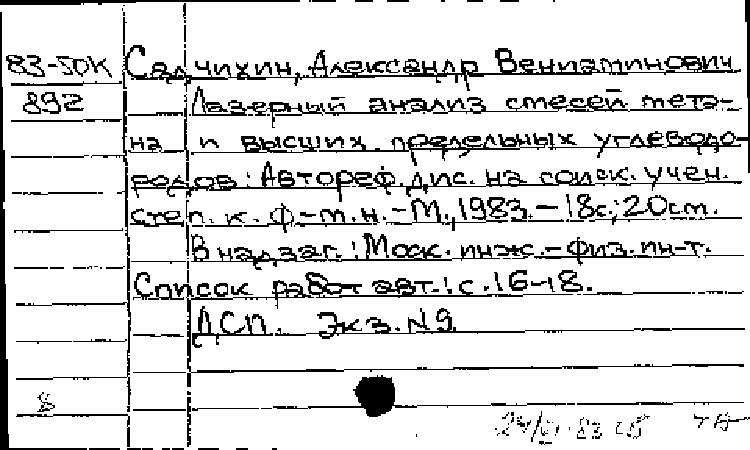 83-50К Садчихин, Александр Вениаминович
892 Лазерный анализ смесей мета-
на и высших предельных углеводо-
родов: Автореф. дис. на соиск. учен.
степ. к. ф.-м.н. - М., 1983. - 18с.; 20см.
В надзаг.: Моск. инж.-физ. ин-т.
Список работ авт.: с. 16-18.
ДСП. Экз. №9
8
24/VI-83